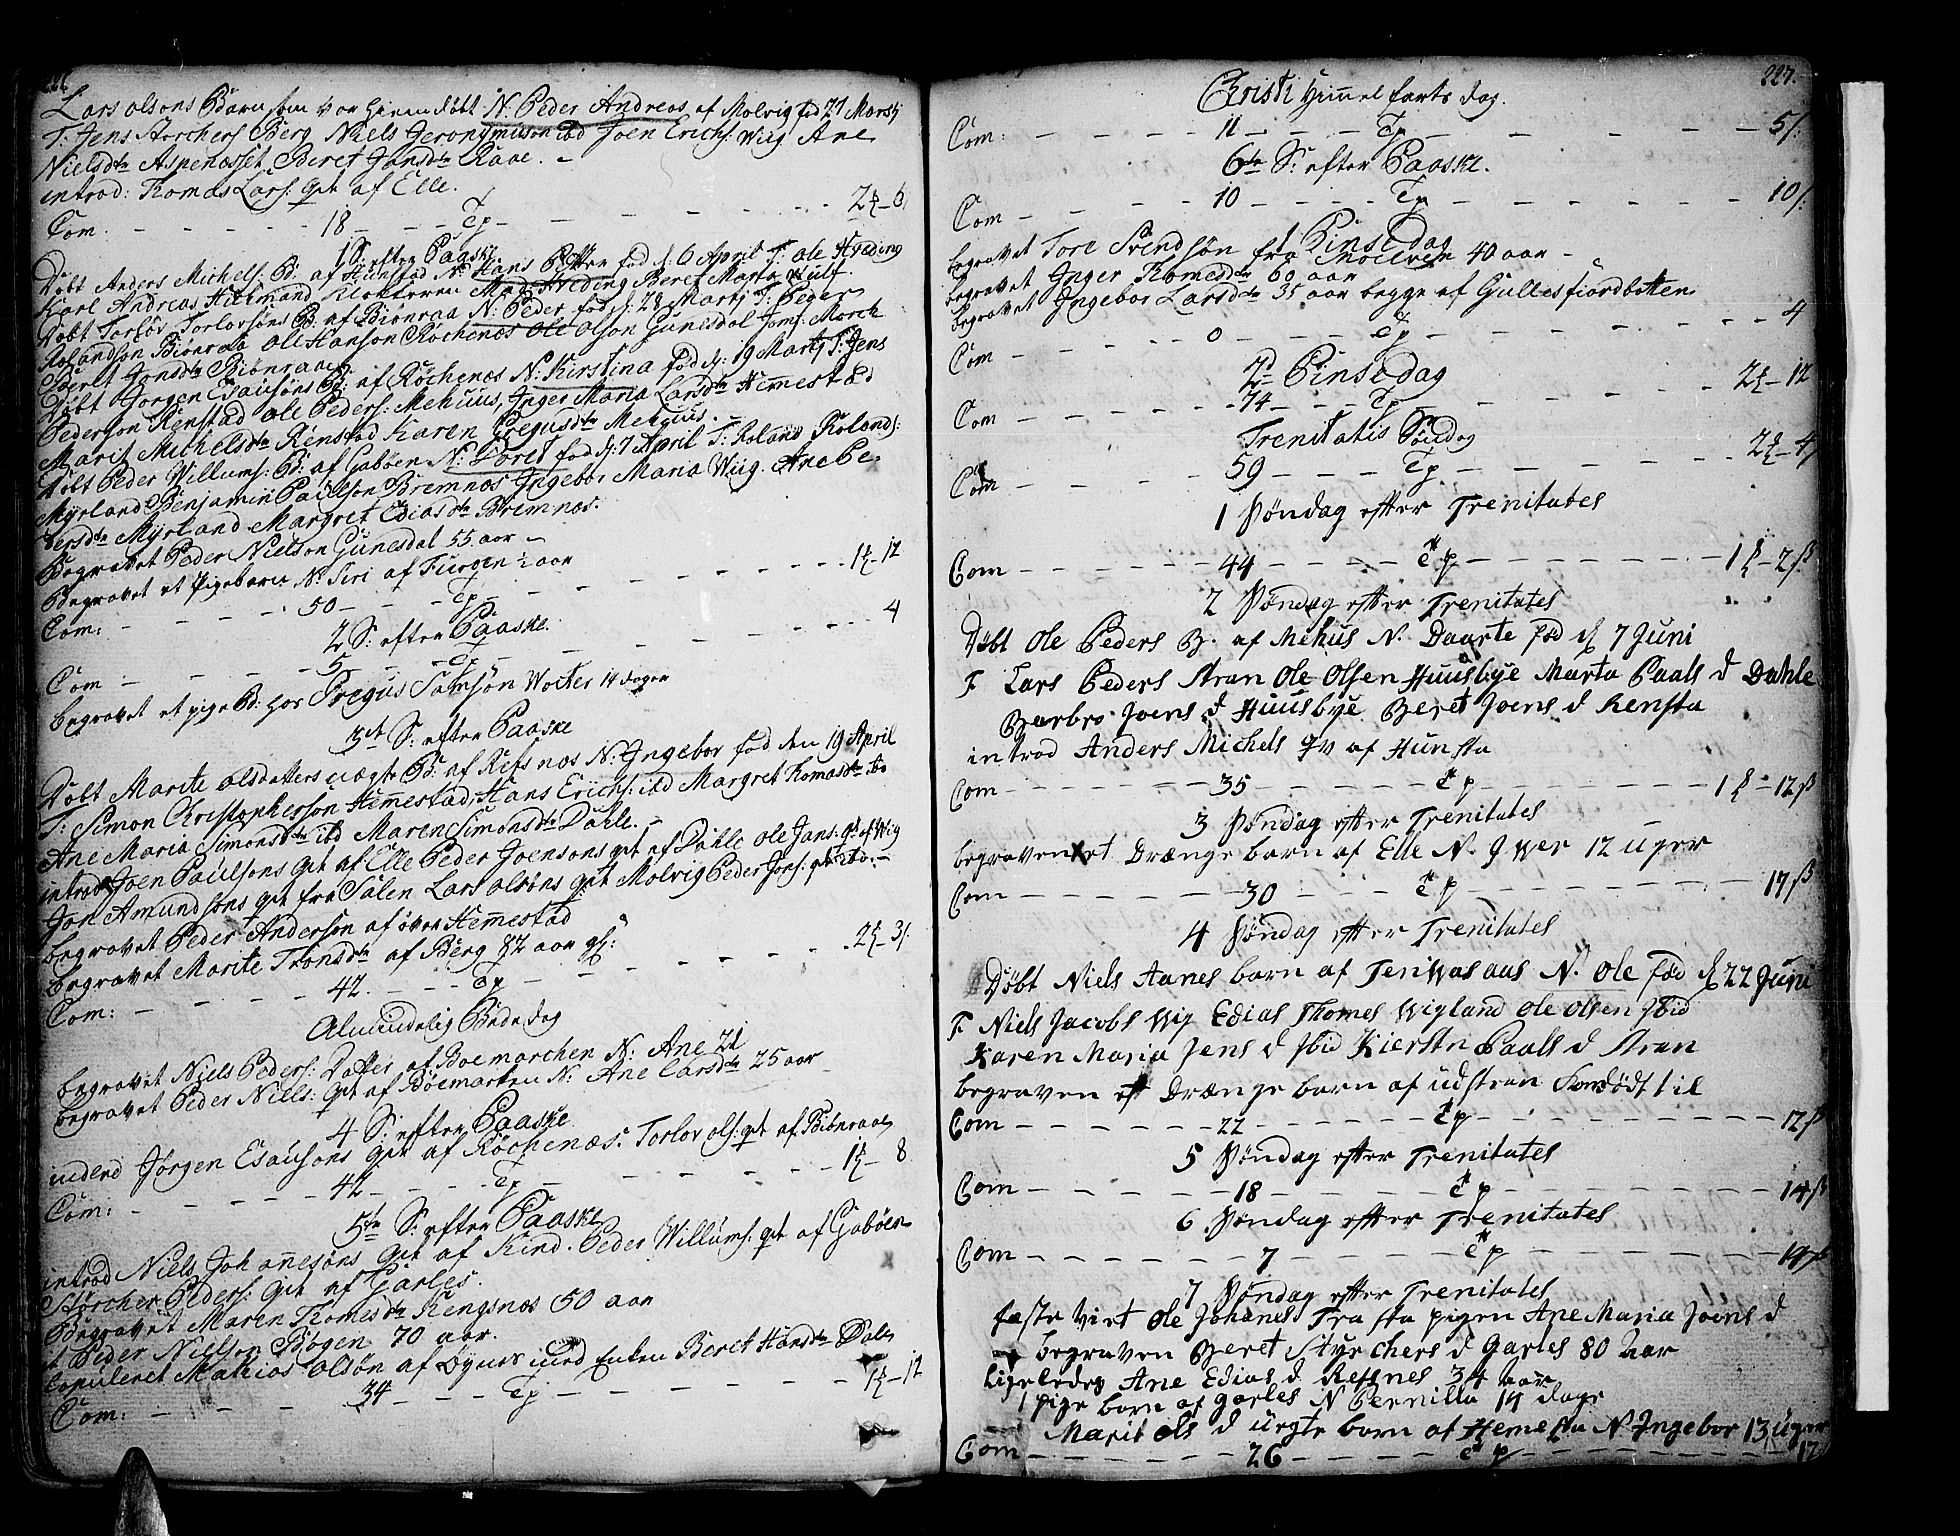 Lars olsons Barn som var hiemdøbt N. Peder Andreas af Molvig fød 27 Martj
T: Jens Storchers Berg Niels Jeronymuson ibd Joen Erichs: Wiig Ane
Nielsdtr Aspenæsset Beret Jonsdtr Raae. –
introd: Thomas Lars: qvt af Elle.
Com. 18 Tp 2 – 6
1 S: efter Paaske.
Døbt Anders Michels: B: af Hunstad N: Hans Petter fød d: 6 April T: ole Hveding
Karl Andreas Hillmand Klokkeren Mad: Hveding Beret Maria Wulf.
Døbt Torlov Torlovsøns B: af Biönraa N: Peder fød d: 28 Martj T: Peder
Rolandson Biönraa ole Hanson Röchenæs ole olson Gunesdal Jomf: Morch
Beret Jonsdtr Biönraae.
Døbt Jørgen Esausøns B: af Röchenæs N: Kirstina fød d: 19 Martj T: Jens
Pederson Renstad ole Peders: Mehuus, Inger Maria Larsdtr Hemmestad
Marit Michelsdtr Renstad Karen Gregusdtr Mehuus. –
Døbt Peder Willums: B: af Gabøen N: Doret fød d: 7 April T: Roland Rolands:
Myrland Benjamin Paulson Bremnes Ingebor Maria Wiig. Ane Pe-
dersdtr Myrland Margret Ediasdtr Bremnæs.
Begravet Peder Nielson Gunesdal 55 aar –
Begravet et Pigebarn N: Siri af Furgen ½ aar
Com: 50 Tp 1 – 12
2 S: efter Paaske.
Com 5 Tp 4
begravet et pige B: hos Gregus Samsøn Wocter 14 dager
3de S: efter Paaske
Døbt Marite olsdatters uægte B: af Refsnæs N: Ingebor fød den 19 April
T: Simon Christophersøn Hemmestad, Hans Erichs: ibd Margret Thomasdtr ibd
Ane Maria Simonsdtr ibd Maren Simonsdtr Dahle. –
introd Joen Paulsons qvt af Elle Peder Joensons qvt af Dahle ole Jans: qvt af Wig
Jon Amundsøns qvt fra Salen Lars olsøns qvt Molvig Peder Jons: qvt
begravet Peder Anderson af øvre Hemmestad
begravet Marite Tronsdtr af Berg 82 aar gl:
Com: 42. Tp 2 – 3
Almindelig Bededag
begravet Niels Peders: Datter af Boemarchen N: Ane 21
begravet Peder Niels: qvt af Böemarken N: Ane Larsdtr 25 aar
4 S: efter Paaske
inderd Jørgen Esausons qvt af Röchenæs. Torlov ols: qvt af Biönraae
Com: 42 Tp 1 – 8
5te S: efter Paaske
introd Niels Johannesøns qvt af Kind. Peder Willums: qvt af Gabøen
Størcher Peders: qvt af Garles.
Begravet Maren Thomesdtr Kengsnæs 50 aar
Peder Nielson Bøgen 70 aar.
Copuleret Mathias olsøn af Synes med Enken Beret Hansdtr Dale
Com: 34 Tp 1 – 12
227.
Christi Himmel farts dag.
Com: 11 Tp 5
6te S: efter Paaske.
Com 10 Tp 10
1 Pinsedag
begravet Tore Svendsøn fra 40 aar –
begravet Inger Thomedtr 60 aar
begravet Ingebor Larsdtr 35 aar begge af Gullesfiordbotten
Com 0 Tp 4
2d Pinsedag
Com 74 Tp 2 – 12
Trenitatis Søndag
Com 59 Tp 2 – 4
1 Søndag efter Trenitates
Com 44 Tp 1 – 2 ß
2 Søndag efter Trenitates
Døbt Ole Peders B. af Mehus N. Daarte fød d 7 Juni
F. Lars Peders Stran Ole Olsen Huusbye Marta Paals d Dahle
Barbro Joens d Huusbye Beret Joens d Rensta
introd Anders Michels qv af Hunsta
Com 35 Tp 1 – 12 ß
3 Søndag efter Trenitates
begraven et Drænge barn af Elle N. Iwer 12 uger
Com 30 Tp 17 ß
4 Søndag efter Trenitates
Døbt Niels Aanes barn af Tenwasaas N. Ole fød d 22 Juni
F. Niels Jacobs Wig Edias Thomes Wigland Ole Olsen Ibid
Karen Maria Jens d Ibid Kierstn Paals d Stran
begraven et Drænge barn af udstran
Com 22 Tp 12 ß
5 Søndag efter Trenitates
Com 18 Tp 14 ß
6 Søndag efter Trenitates
Com 7 Tp
7 Søndag efter Trenitates
fæste viet Ole Johanes Trasta pigen Ane Maria Joens d
begraven Beret Styrchers d Garles 80 Aar
Ligeledes Ane Edias d Refsnes 34 Aar
1 pige barn af Garles N Pernilla 14 dage
Marit Ols d uegte barn af Hemesta N Ingebor 13 uger
Com 26 Tp 12